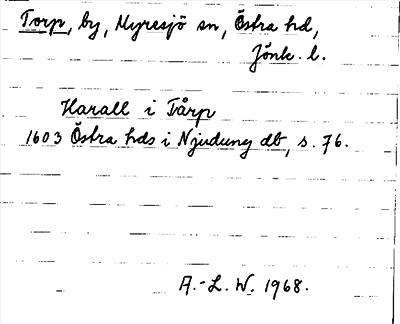 Torp, by, Myresjö sn, Östra hd,
Jönk. l.
Harall i Tårp
1603 Östra hds i Njudung db, s. 76.
A.-L. W. 1968.